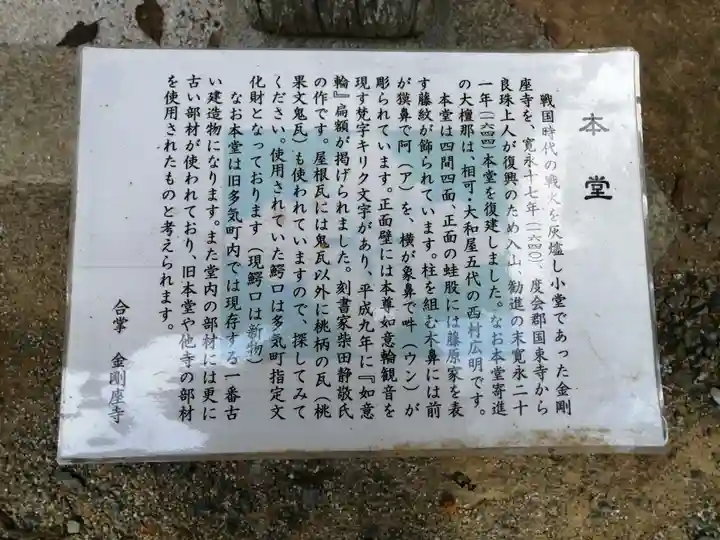 本堂
戦国時代の戦火を灰燼し小堂であった金剛
座寺を、寛永十七年(一六四〇)、度会郡国東寺から
良珠上人が復興のため入山、勧進の末寛永二十
一年(一六四四)本堂を復建しました。なお本堂寄進
の大檀那は、相可・大和屋五代の西村広明です。
本堂は四間四面、正面の蛙股には藤原家を表
す藤紋が飾られています。柱を組む木鼻には前
が獏鼻で阿(ア)を、横が象鼻で吽(ウン)が
彫られています。正面壁には本尊如意輪観音を
現す梵字キリク文字があり、平成九年に『如意
輪』扁額が掲げられました。刻書家柴田静敬氏
の作です。屋根瓦には鬼瓦以外に桃柄の瓦(桃
果文鬼瓦)も使われていますので、探してみて
ください。使用されていた鰐口は多気町指定文
化財となっております(現鰐口は新物)
なお本堂は旧多気町内では現存する一番古
い建造物になります。また堂内の部材には更に
古い部材が使われており、旧本堂や他寺の部材
を使用されたものと考えられます。
合掌 金剛座寺